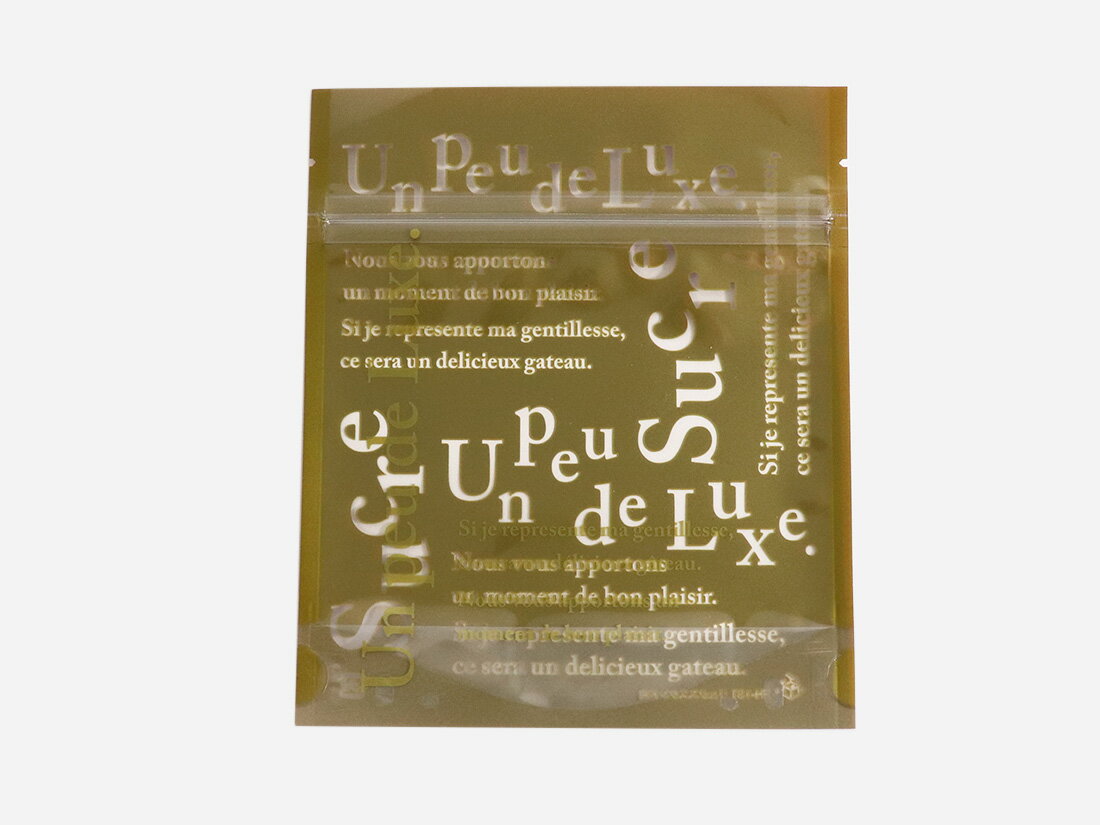 Un peu de Luxe.
Nous vous apporton
un moment de bon plaisir.
Si je represente ma gentillesse,
ce sera un delicieux gateau.
Sucre
Si je represente ma gentillesse,
ce sera un delicieux gateau.
Sucre
Un peu de Luxe.
Un peu de Luxe.
Si je represente ma gentillesse,
Nous vous apportons
un moment de bon plaisir.
Si je represente ma gentillesse,
ce sera un delicieux gateau.